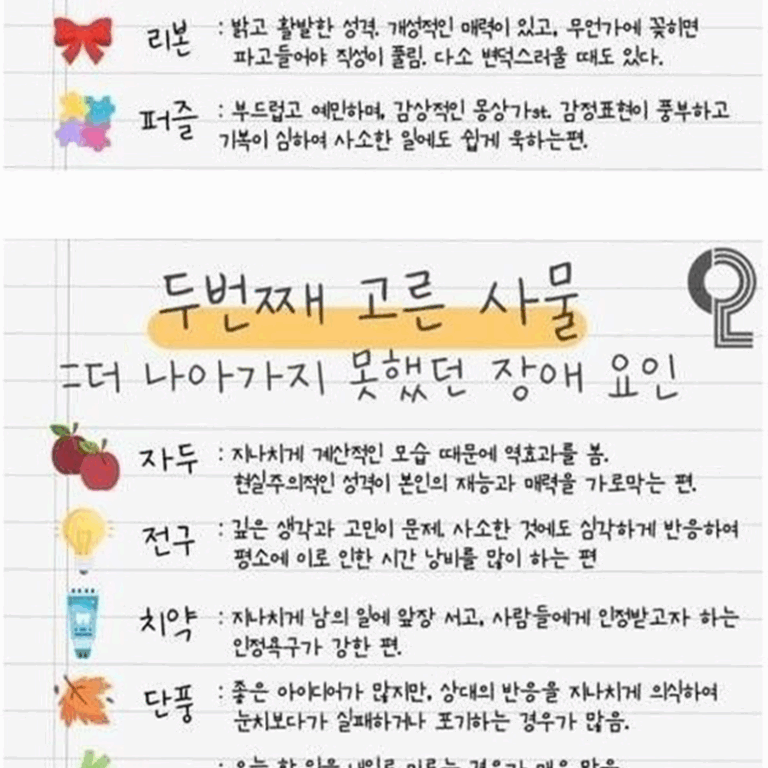 리본 : 밝고 활발한 성격. 개성적인 매력이 있고, 무언가에 꽂히면
파고들어야 직성이 풀림. 다소 변덕스러울 때도 있다.
퍼즐 : 부드럽고 예민하며, 감상적인 몽상가st. 감정표현이 풍부하고
기복이 심하여 사소한 일에도 쉽게 욱하는편.
두번째 고른 사물
=더 나아가지 못했던 장애 요인
자두 : 지나치게 계산적인 모습 때문에 역효과를 봄.
현실주의적인 성격이 본인의 재능과 매력을 가로막는 편.
전구 : 깊은 생각과 고민이 문제. 사소한 것에도 심각하게 반응하여
평소에 이로 인한 시간 낭비를 많이 하는 편
치약 : 지나치게 남의 일에 앞장 서고, 사람들에게 인정받고자 하는
인정욕구가 강한 편.
단풍 : 좋은 아이디어가 많지만, 상대의 반응을 지나치게 의식하여
눈치보다가 실패하거나 포기하는 경우가 많음.